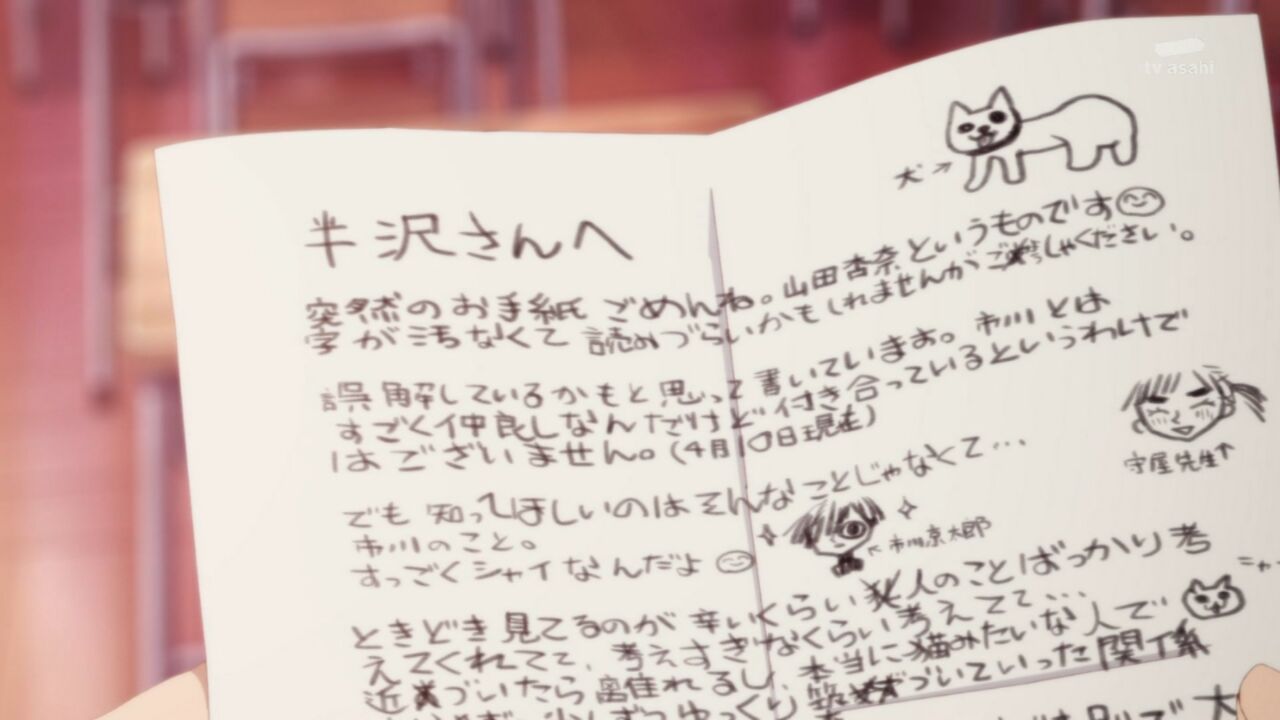 tv asahi
犬→
半沢さんへ
突然のお手紙ごめんね。山田杏奈というものです
字が汚なくて読みづらいかもしれませんがご しゃください。
誤解しているかもと思って書いています。市川とは
すごく仲良しなんだけど付き合っているというわけで
はございません。(4月10日現在)
守屋先生↑
でも知ってほしいのはそんなことじゃなくて…
市川のこと。
←市川京太郎
すっごくシャイなんだよ
ときどき見てるのが辛いくらい人のことばっかり考
えてくれてて、考えすぎなくらい考えてて…
ニャー
近づいたら離れるし、本当に猫みたいな人で
少しずつゆっくり築 づいていった関係